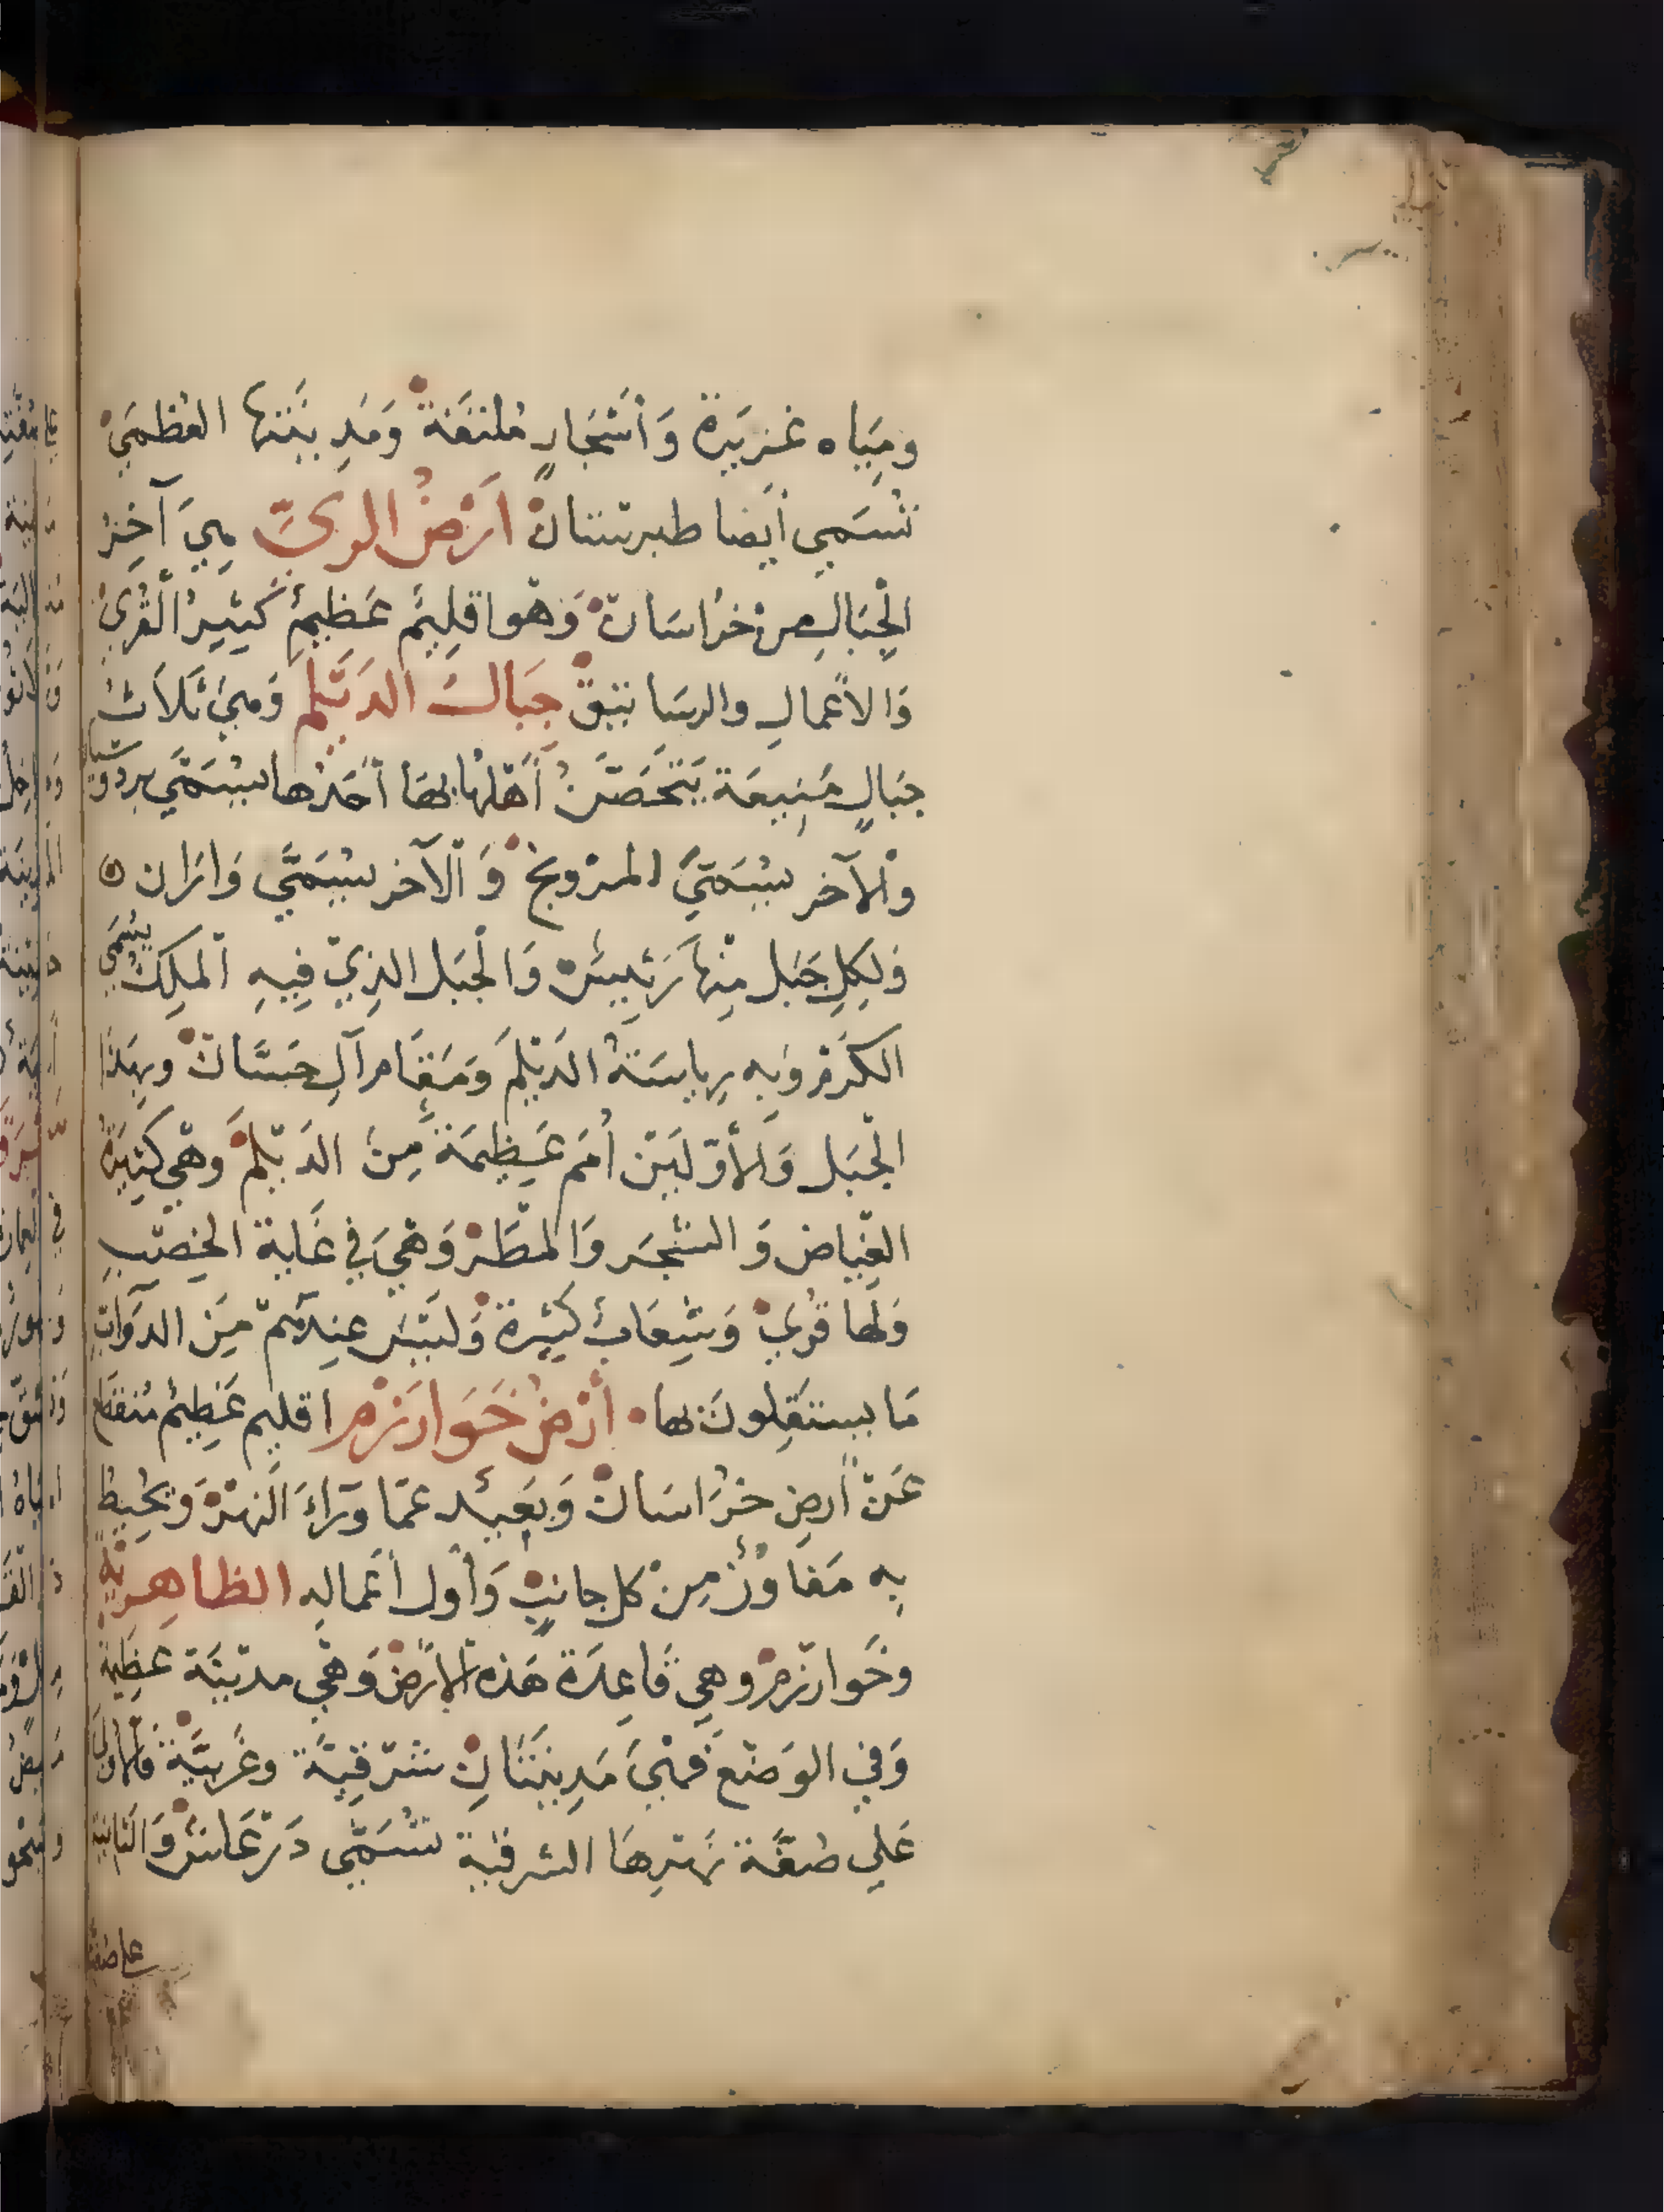 ومِيَاه غزيرة وَأشجارٍ ملتفة وَمَدينتها العظمَي
تُسَمي أيضا طبرستان أرْضُ الريّ هيَ آخِرُ
الْجِبَالِ من خراسَان وَهْوا قلِيْم عَظِيمٌ كَثِيرُ الْقُريَ
وَالأعمالِ والرسَاتيق جبَال الدَيْلم وَهيَ ثَلاَثُ
جبَالٍ مَنِيعَة يَتحَصَّنُ أهْلها بهَا أحَدُها يُسَمَّي بردوسيان
وَالآخر يُسَمَّيَ المرْوبخ وَالآخر يُسَمَّي وَارَان
وَلِكلِ جَبَل مِنْها رَئِيسٌ وَالْجَبَل الذِيْ فِيهِ المَلِكُ يُسَمَي
الكَرْم وَبه رياسَةُ الدَيْلَم وَمَقَام آلِ حَسَّان وبهَذَا
الْجَبَل وَالأوّلَيْن أمَم عَظِيمَة مِنَ الدَيْلم وَهْي كَثِيرَةُ
الغِيَاض وَالشْجَر وَالمْطَر وَهْيَ في غَاية الخِصْب
وَلَها قُريً وَشِعَابٌ كَثِيرة وَلَيْسَ عِندَهُمْ مِنَ الدوَابّ
مَا يستَقِلونَ بها أرْضُ خَوَارَزْم اقليم عَظِيْمٌ مُنقَطع
عَنْ أرض خرَاسَان وَبَعِيد عمّا ورَاءَ النهرْ وَيحُيطُ
بِه مَفَاوُزٌ مِنْ كل جانِبٍ وَأول أعمالِهِ الظاهِريّة
وخَوارزم وهي قَاعِدَة هَذه الأرضْ وَهْي مدْيَنة عَظِيمَةٌ
وَفي الوَضْع فَهْيَ مَدِينَتَانِ شرْقِيَّة وغَربيَّة فَالأولَي
عَلي ضفَّة نَهْرِهَا الشرقية تُسَمَّي دَرْعَاش وَالثانِيَة
علي ضفة